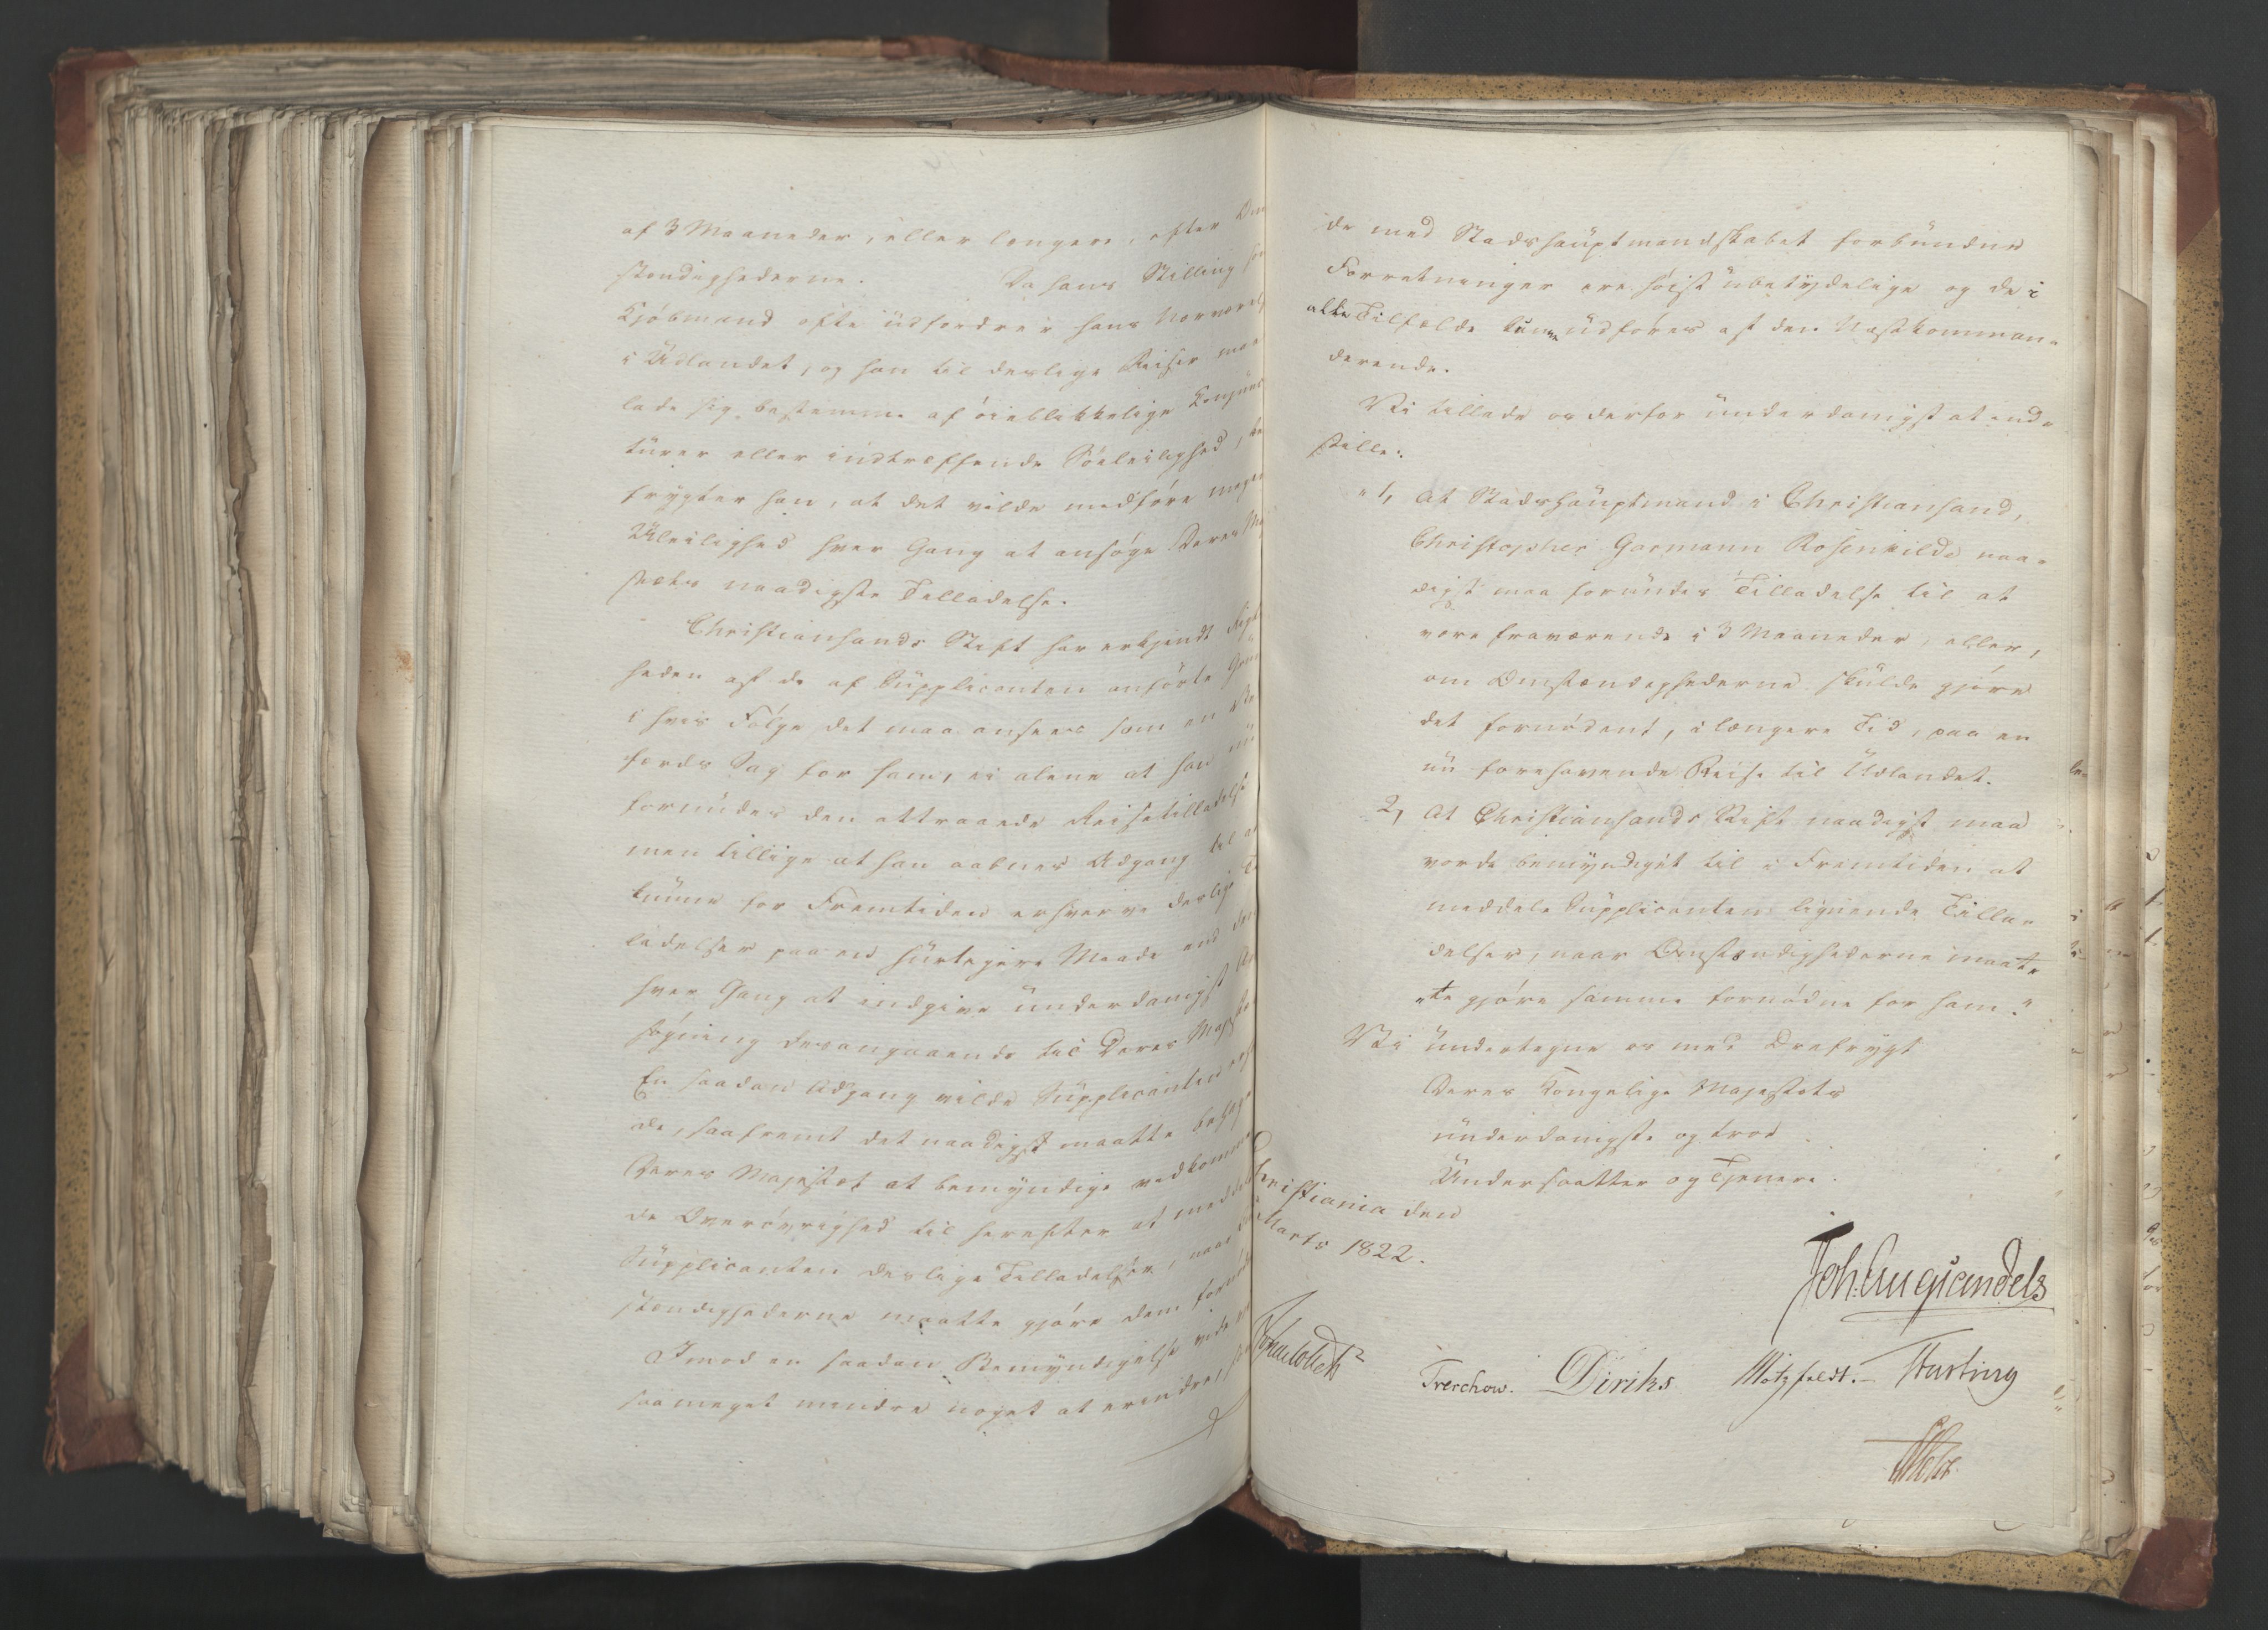 af 3 Maaneder, eller længere, efter Om
stændighederne. Da hans Stilling som
Kjöbmand ofte udfordrer hans Nærværelse
i Udlandet, og han til deslige Reiser maa
lade sig bestemme af öieblikkelige Conjunc
turer eller indtræffende Söeleilighed,
frygter han, at det vilde medföre megen
Uleilighed hver Gang at ansöge Deres Ma
jestæts naadigste Tilladelse.
Christiansands Stift har erkjendt Rigtig
heden af de af Supplicanten anförte Grunde
i hvis Fölge det maa ansees som en Vel
færds Sag for ham, ei alene at han nu
forundes den attraaede Reisetilladelse
men tillige at han aabnes Adgang til at
kunne for Fremtiden erhverve deslige Til
ladelser paa en hurtigere Maade end den
hver Gang at indgive underdanigst An
sögning desangaaende til Deres Majestæt
En saadan Adgang vilde Supplicanten
de, saafremt det naadigst maatte behage
Deres Majestæt at bemyndige vedkommen
de Overövrighed til herefter at meddele
Supplicanten deslige Tilladelser, naar Om
stændighederne maatte gjöre dem fornödne
Imod en saadan Bemyndigelse vide vi
saameget mindre noget at erindre, som
de med Stadshauptmandskabet forbundne
Forretninger ere höist ubetydelige og de i
alle Tilfælde kunne udföres af den Næstkomman-
derende.
Vi tillade os derfor underdanigst at ind-
stille:
"1, At Stadshauptmand i Christiansand,
Christopher Garmann Rosenkilde naa-
digst maa forundes Tilladelse til at
være fraværende i 3 Maaneder, eller,
om Omstændighederne skulde gjöre
det fornödent, i længere Tid, paa en
nu forehavende Reise til Udlandet.
2, At Christiansands Stift naadigst maa
vorde bemyndiget til i Fremtiden at
meddele Supplicanten lignende Tilla-
delser, naar Omstændighederne maat-
"te gjöre samme fornödne for ham."
Vi undertegne os med Ærefrygt
Deres Kongelige Majestæts
underdanigste og troe
Undersaatter og Tjenere.
Christiania den
Marts 1822.
Joh: Aug: Sandels
Treschow. Diriks Motzfeldt. Hasting